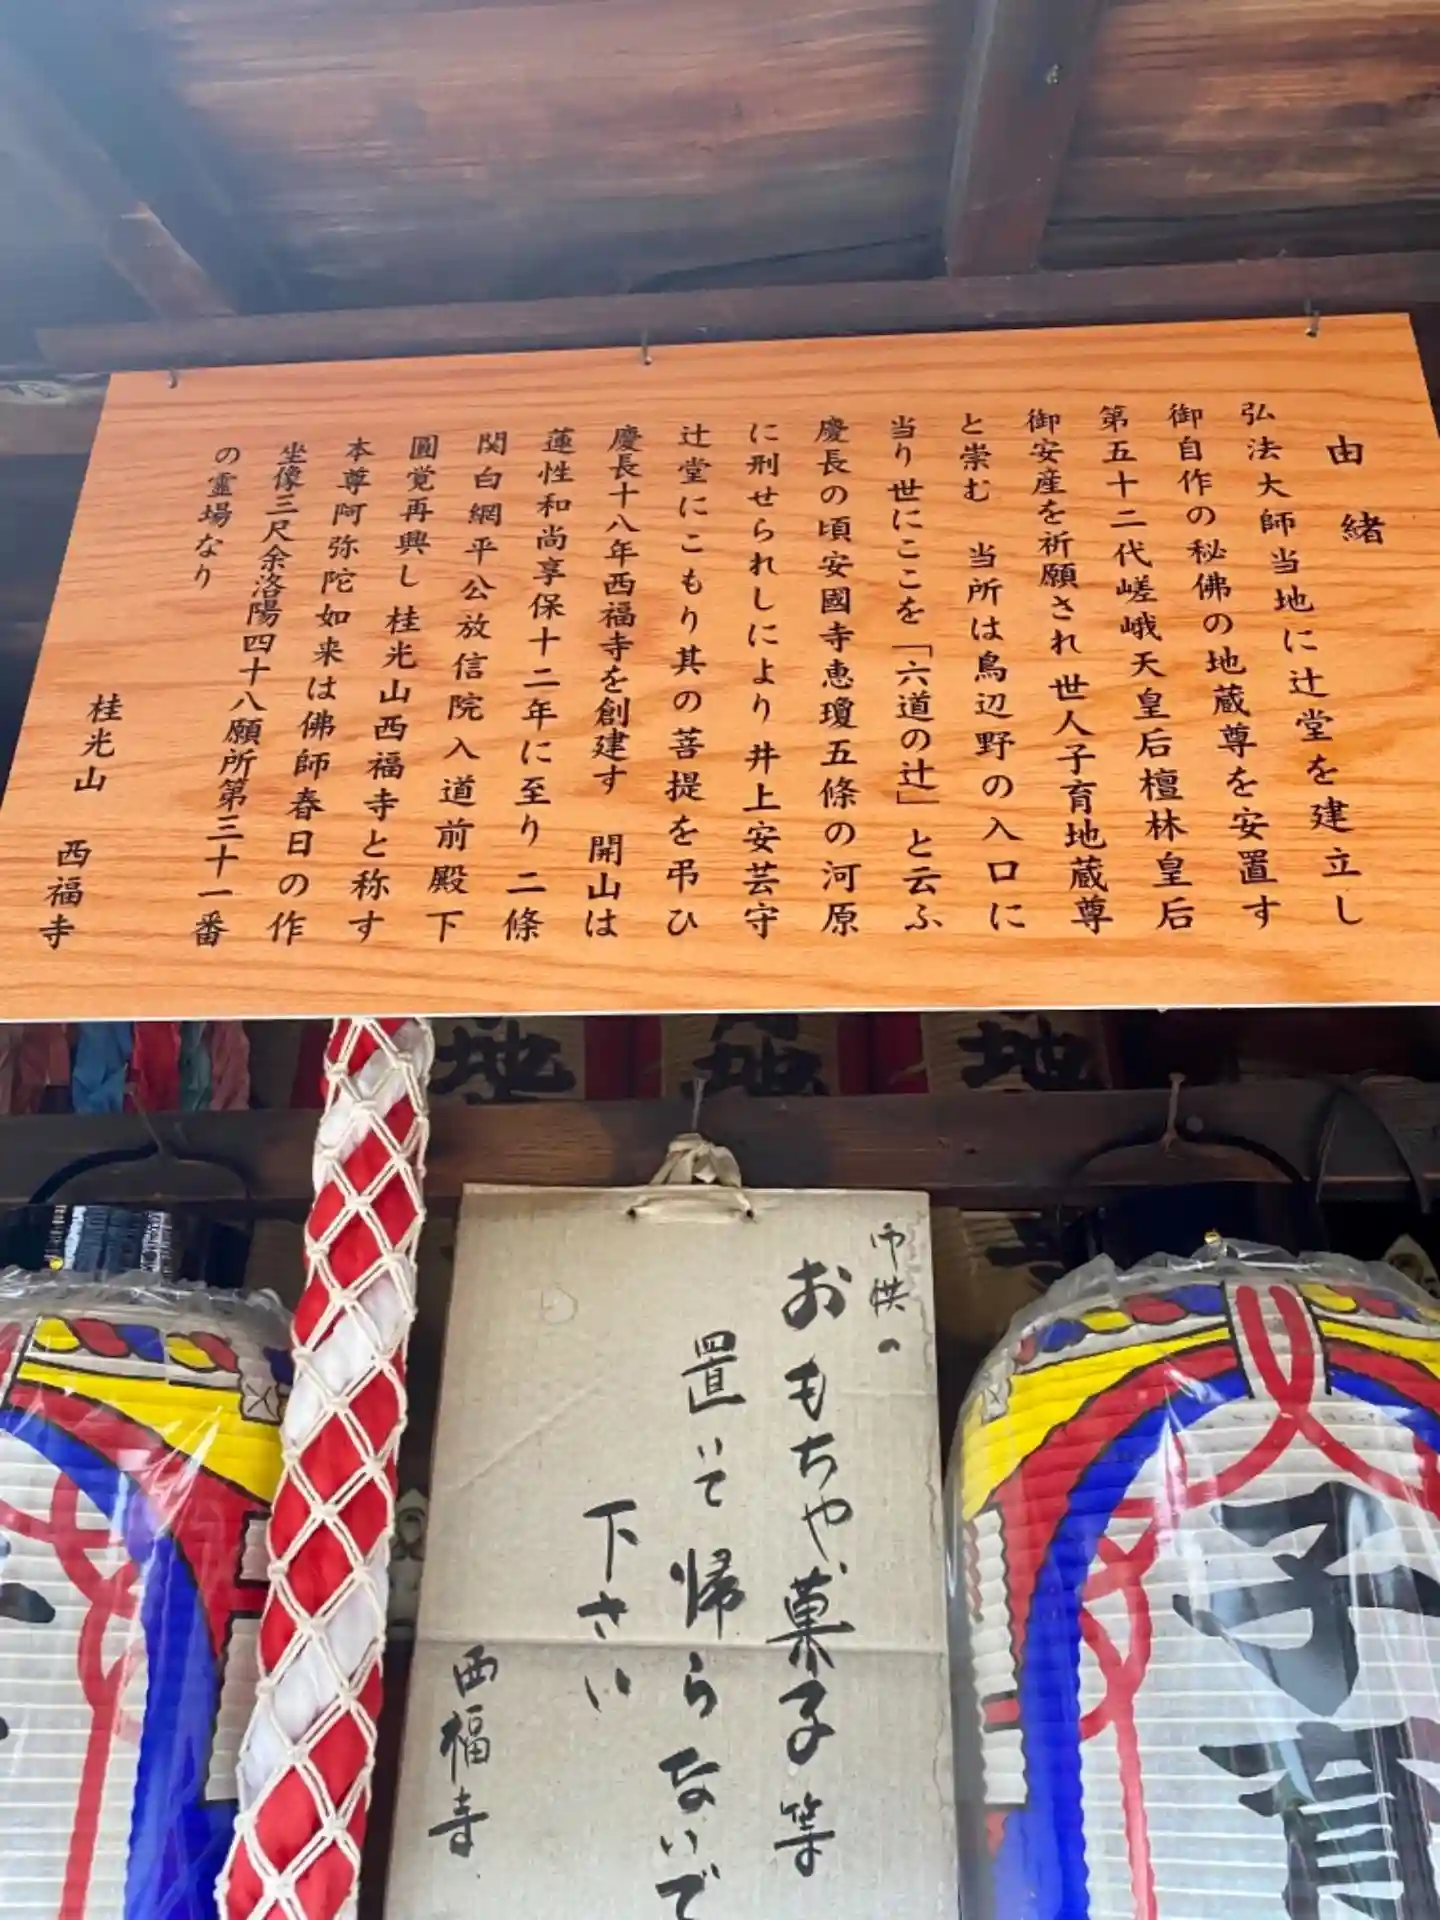 由緒
弘法大師当地に辻堂を建立し
御自作の秘佛の地蔵尊を安置す
第五十二代嵯峨天皇皇后檀林皇后
御安産を祈願され世人子育地蔵尊
と崇む 当所は鳥辺野の入口に
当り世にここを「六道の辻」と云ふ
慶長の頃安國寺恵瓊五條の河原
に刑せられしにより井上安芸守
辻堂にこもり其の菩提を弔ひ
慶長十八年西福寺を創建す 開山は
蓮性和尚享保十二年に至り二條
関白綱平公放信院入道前殿下
圓覚再興し桂光山西福寺と称す
本尊阿弥陀如来は佛師春日の作
坐像三尺余洛陽四十八願所第三十一番
の霊場なり
桂光山 西福寺
地
地
地
御供の
おもちゃ菓子等
置いて帰らないで
下さい
西福寺
子育